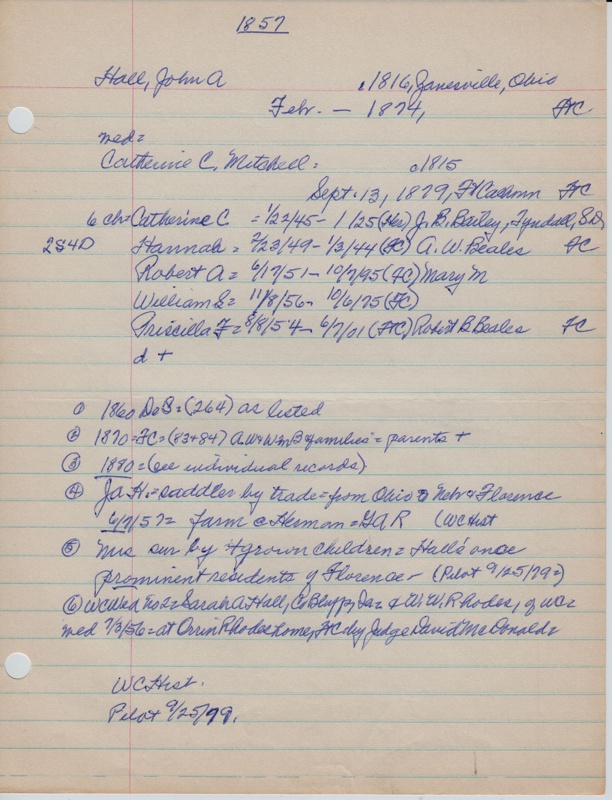 1857
Hall, John A c1816, Zanesville, Ohio
Febr. — 1874, FC
med=
Catherine C. Mitchell= c1815
Sept. 13, 1879, Ft Calhoun FC
6 ch= Catherine C = 1/22/45 - 1/25 J. B. Bailey, Tyndall, S.D,
2S4D Hannah = 2/23/49 - 1/3/44 (FC) A. W. Beales FC
Robert A = 6/17/51 - 10/7/95 (FC) Mary M
William S = 11/8/56 - 10/6/75 (FC)
Priscilla F = 8/8/54 - 6/7/01 (FC) Robert B. Beales FC
d +
① 1860 DoB = (264) as listed
② 1870 = FC = (83+84) families = parents +
③ 1880 = (see individual records)
④ Ja H. = saddler by trade = from Ohio to Nebr & Florence
6/7/57 = farm c Herman = GAR (WC Hist
⑤ Mrs sur by 4 grown children = Hall's once
prominent residents of Florence - (Pilot 9/25/79=)
⑥ WC Wed No 2 = Sarah A Hall, Co Bluffs, Ia = & W. W. Rhodes, of WC=
med 7/3/56 = at Orrin Rhodes home, FC by Judge David McDonald=
WC Hist.
Pilot 9/25/79.